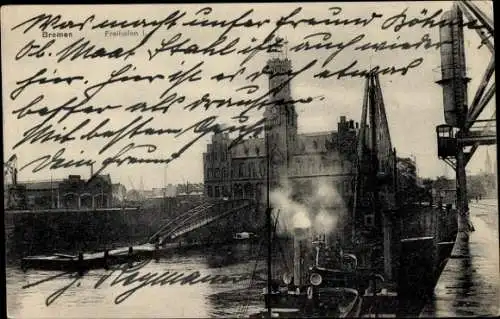 Bremen Freihafen I.
Was macht unser Freund Böhme
Ob. Maat Stahl ist auch wieder
hier, hier ist es doch etwas
besser als draußen
Mit bestem Gruß
Dein Freund
Heymann